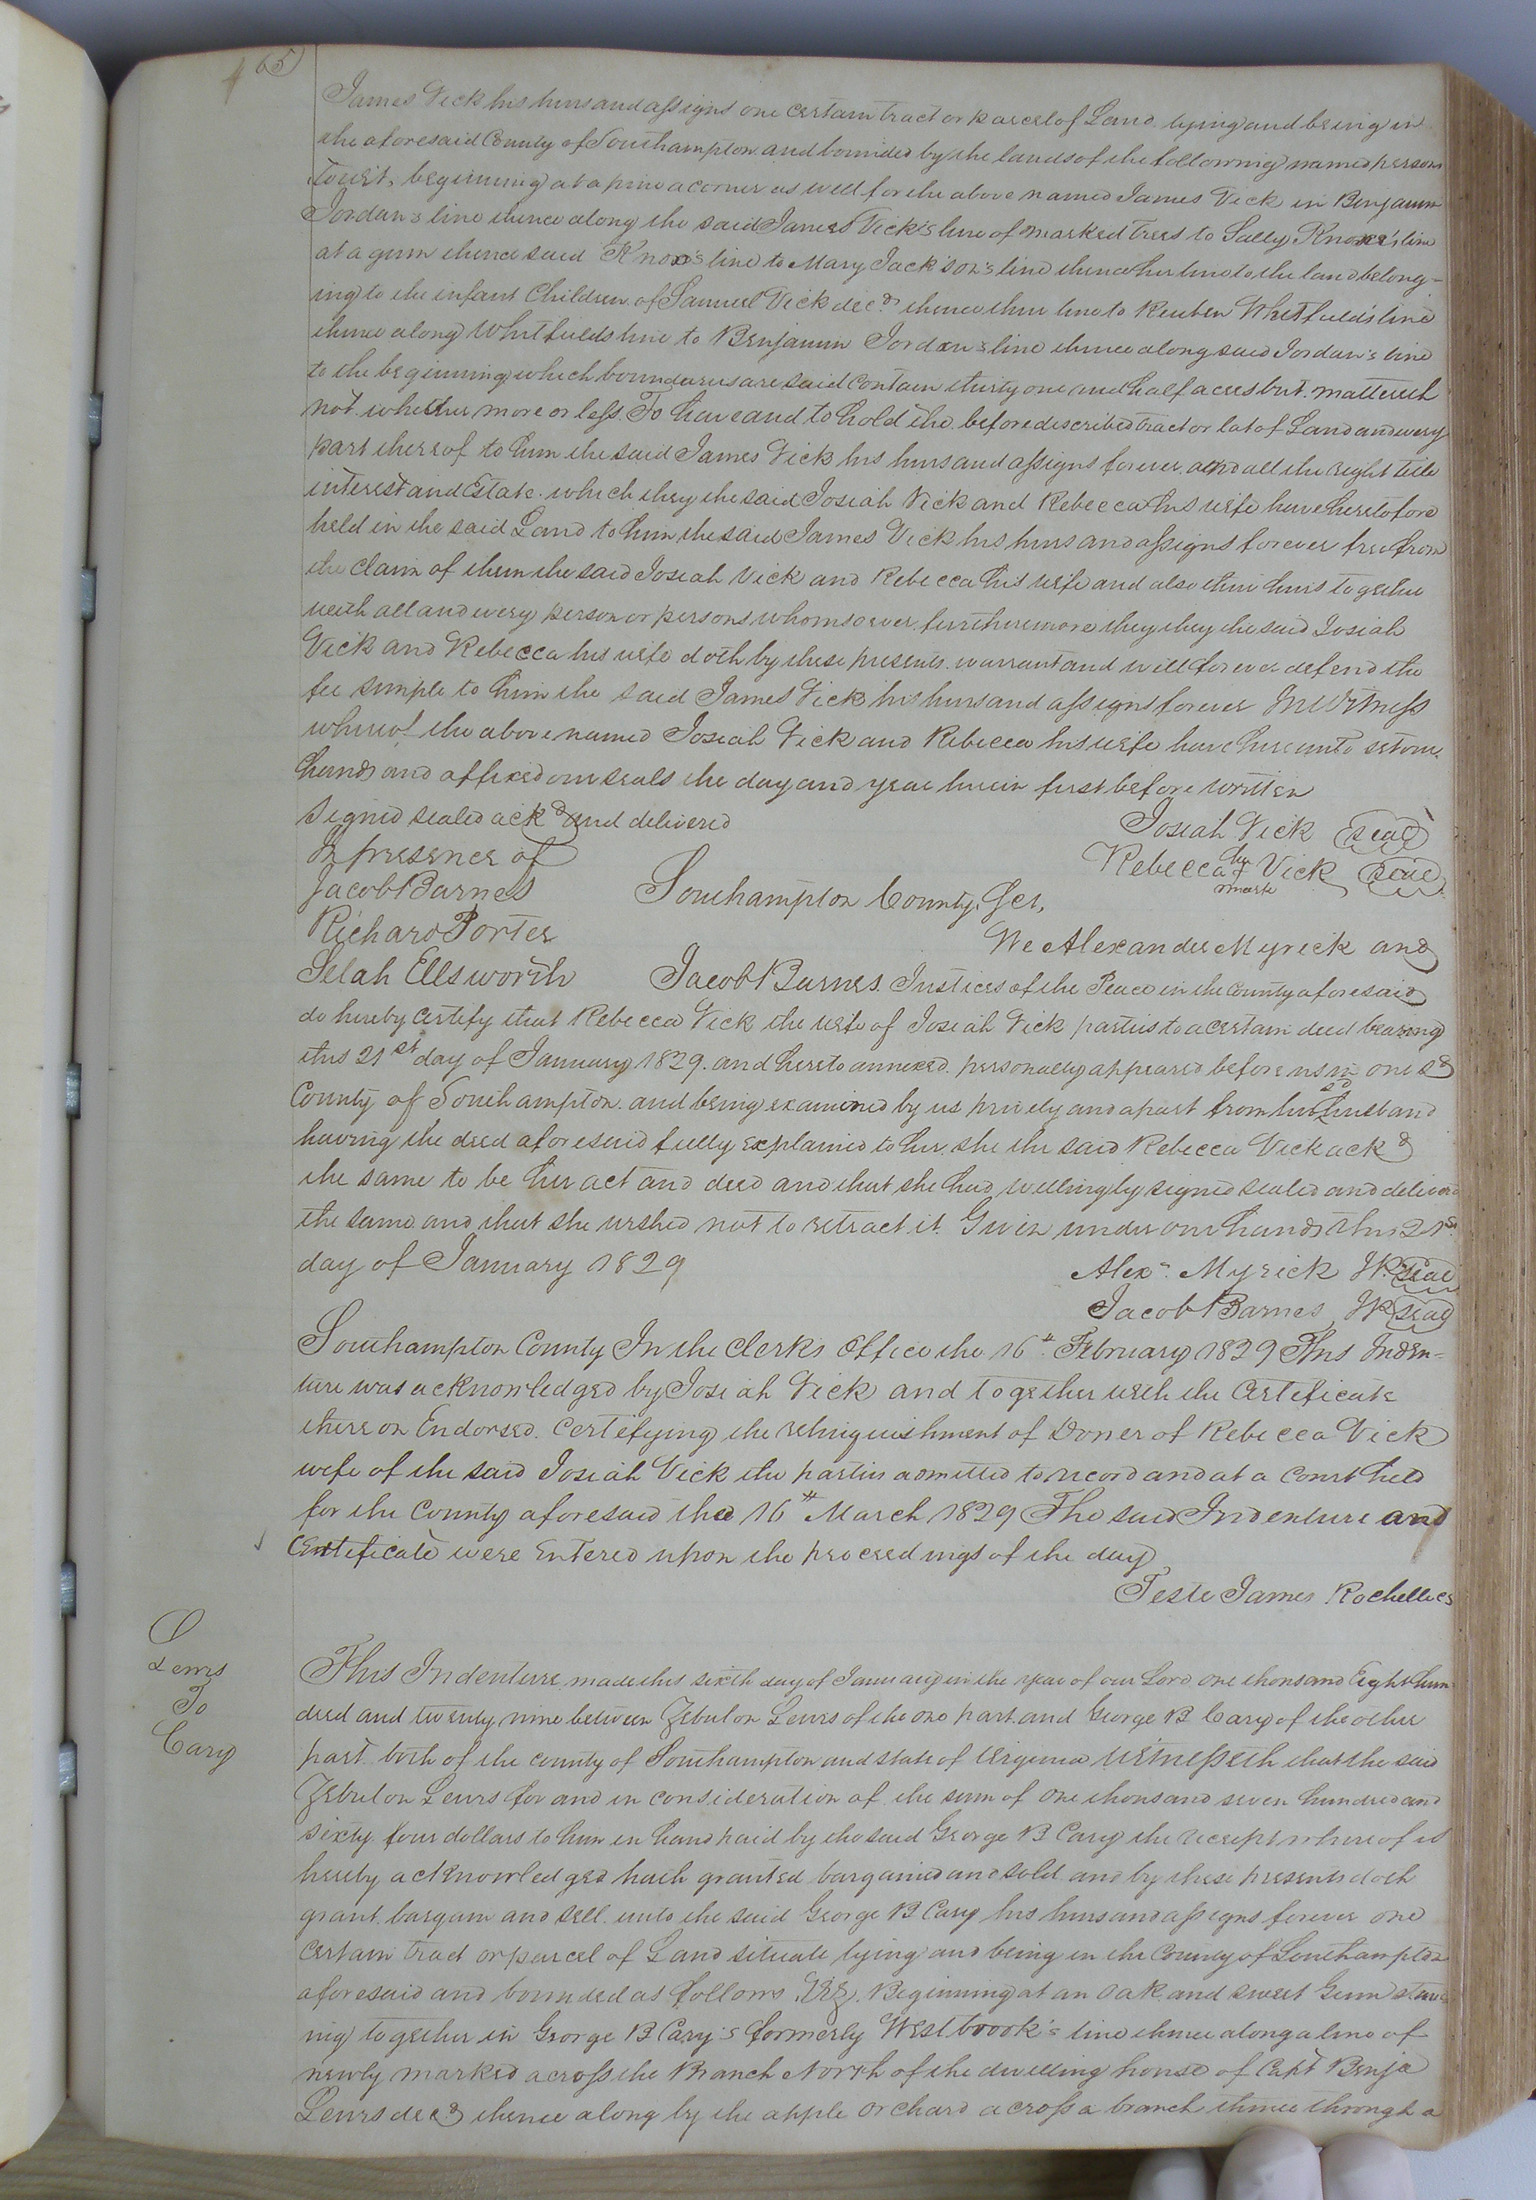 465
James Vick his heirs and assigns one certain tract or parcel of Land lying and being in
the aforesaid County of Southampton and bounded by the lands of the following named persons
Towit, beginning at a pine a corner as well for the above named James Vick in Benjamin
Jordan's line thence along the said James Vick's line of marked trees to Sally Knox's line
at a gum thence said Knox's line to Mary Jackson's line thence her line to the land belong-
ing to the infant Children of Samuel Vick decd thence their line to Reuben Whitfield's line
thence along Whitfields line to Benjamin Jordan's line thence along said Jordan's line
to the beginning which boundaries are said contain thirty one and half acres but mattereth
not whether more or less. To have and to hold the before described tract or lot of Land and every
part thereof to him the said James Vick his heirs and assigns forever and all the right title
interest and Estate which they the said Josiah Vick and Rebecca his wife have heretofore
held in the said Land to him the said James Vick his heirs and assigns forever free from
the claim of them the said Josiah Vick and Rebecca his wife and also their heirs together
with all and every person or persons whomsoever furthermore they they the said Josiah
Vick and Rebecca his wife doth by these presents warrant and will forever defend the
fee simple to him the said James Vick his heirs and assigns forever In Witness
whereof the above named Josiah Vick and Rebecca his wife have hereunto set our
hands and affixed our seals the day and year herein first before written
Signed sealed ackd and delivered Josiah Vick seal
In presence of Rebecca her + mark Vick seal
Jacob Barnes Southampton County, Sct,
Richard Porter We Alexander Myrick and
Selah Ellsworth Jacob Barnes Justices of the Peace in the County aforesaid
do hereby certify that Rebecca Vick the wife of Josiah Vick parties to a certain deed bearing
this 21st day of January 1829. and hereto annexed personally appeared before us in our sd
County of Southampton and being examined by us privily and apart from her sd husband
having the deed aforesaid fully explained to her, she the said Rebecca Vick ackd
the same to be her act and deed and that she had willingly signed sealed and delivered
the same and that she wished not to retract it Given under our hands this 21st
day of January 1829 Alexr Myrick JP seal
Jacob Barnes JP seal
Southampton County In the Clerks Office the 16th February 1829 This Inden-
ture was acknowledged by Josiah Vick and together with the Certificate
thereon Endorsed Certifying the relinquishment of Dower of Rebecca Vick
wife of the said Josiah Vick the parties admitted to record and at a court held
for the County aforesaid the 16th March 1829 The said Indenture and
Certificate were entered upon the proceedings of the day
Teste James Rochelle cs
Lewis
To
Cary
This Indenture made this sixth day of January in the year of our Lord one thousand Eight hun-
dred and twenty nine between Zebulon Lewis of the one part and George B Cary of the other
part both of the county of Southampton and state of Virginia Witnesseth that the said
Zebulon Lewis for and in consideration of the sum of one thousand seven hundred and
sixty four dollars to him in hand paid by the said George B Cary the receipt whereof is
hereby acknowledged hath granted bargained and sold and by these presents doth
grant bargain and sell unto the said George B Cary his heirs and assigns forever one
certain tract or parcel of Land situate lying and being in the County of Southampton
aforesaid and bounded as follows Viz. Beginning at an oak and sweet Gum stan
ing together in George B Cary's formerly Westbrook's line thence along a line of
newly marked across the Branch North of the dwelling house of Capt Benja
Lewis decd thence along by the apple orchard across a branch thence through a